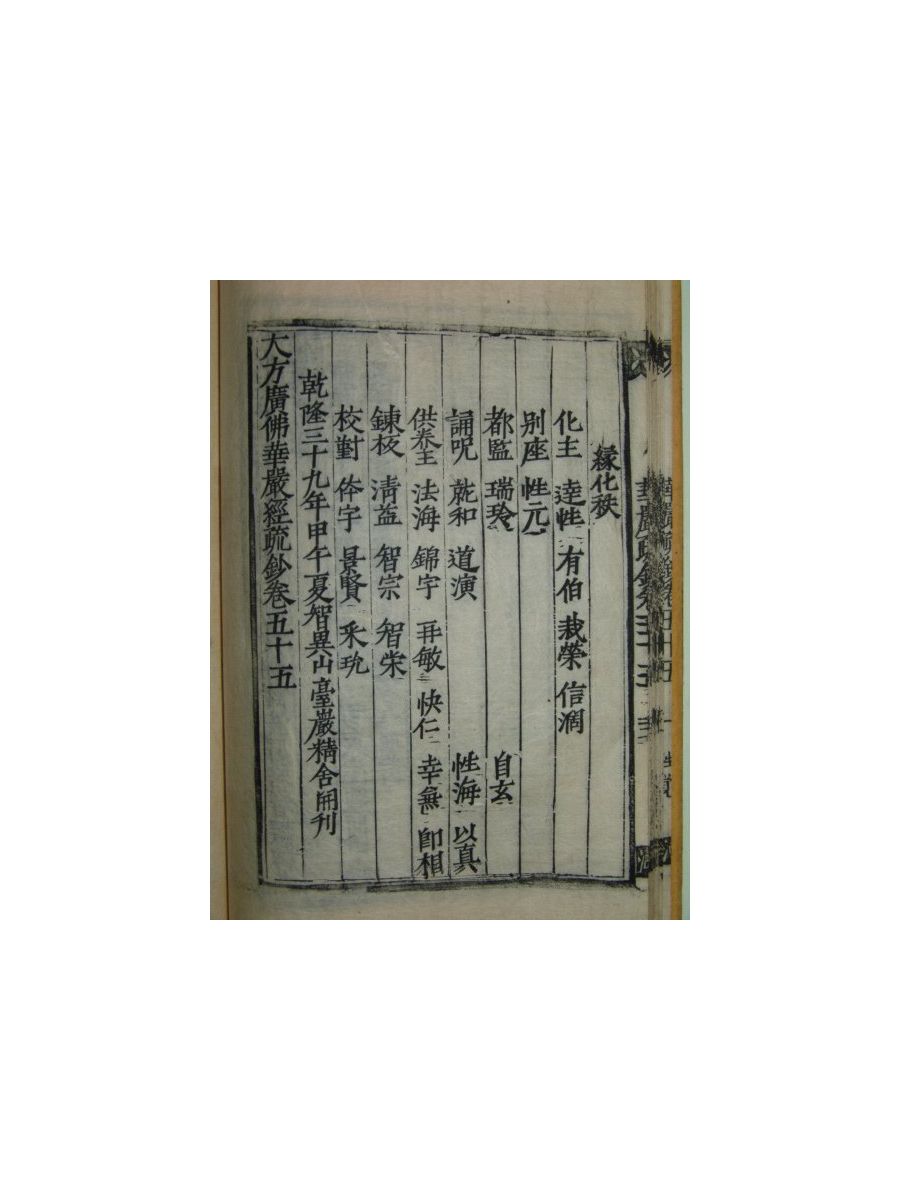 緣化秩
化主 達性 有伯 栽榮 信濶
別座 性元
都監 瑞玲 自玄
誦呪 就和 道演 性海 以真
供養主 法海 錦宇 再敏 快仁 幸無 即相
鍊板 清益 智宗 智荣
校對 体宇 景賢 采玧
乾隆三十九年甲午夏智異山臺巖精舍開刊
大方廣佛華嚴經疏鈔卷五十五